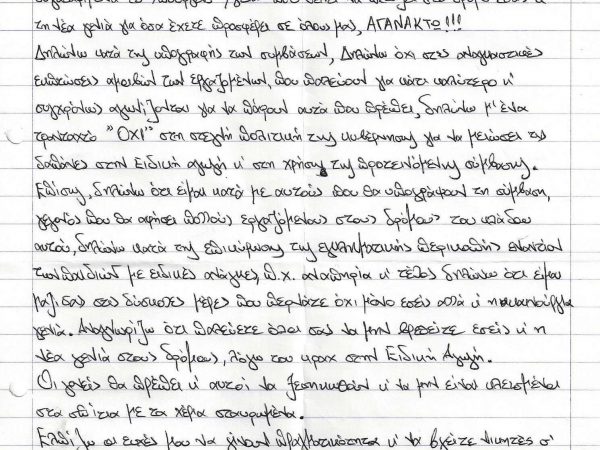 τη νέα γενιά για όσα έχετε προσφέρει σε όλους μας, ΑΓΑΝΑΚΤΩ!!!
Δηλώνω κατά της υπογραφής των συμβάσεων, Δηλώνω όχι στις αναγκαστικές
εκπτώσεις αμοιβών των εργαζομένων, που παλεύουν για κάτι καλύτερο κ'
συγχρόνως αγωνίζονται για να πάρουν αυτά που πρέπει, δηλώνω μ' ένα
τρανταχτό "ΟΧΙ" στη στεγνή πολιτική της κυβέρνησης για να μειώσει τις
δαπάνες στην Ειδική αγωγή κ' στη χρήση της προτεινόμενης σύμβασης.
Επίσης, δηλώνω ότι είμαι κατά με αυτούς που θα υπογράψουν τη σύμβαση,
γεγονός που θα αφήσει πολλούς εργαζόμενους στους δρόμους του κλάδου
αυτού, δηλώνω κατά της επικύρωσης της εγκληματικής περικοπής εναντίον
των παιδιών με ειδικές ανάγκες, π.χ. αναπηρία κ' τέλος δηλώνω ότι είμαι
μαζί σας στις δύσκολες μέρες που περνάτε όχι μόνο εσείς αλλά κ' η καινούργια
γενιά. Αναγνωρίζω ότι παλεύετε όλοι σας να μην βρεθείτε εσείς κ' η
νέα γενιά στους δρόμους, λόγω του κραχ στην Ειδική Αγωγή.
Οι γονείς θα πρέπει κ' αυτοί να ξεσηκωθούν κ' να μην είναι κλεισμένοι
στα σπίτια με τα χέρια σταυρωμένα.
Ελπίζω οι ευχές μου να γίνουν πραγματικότητα κ' να βγείτε νικητές σ'